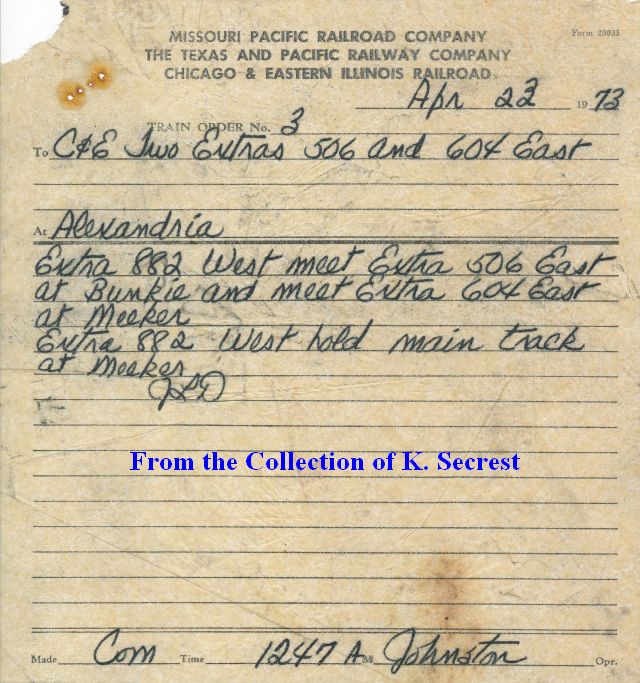 MISSOURI PACIFIC RAILROAD COMPANY
Form 20035
THE TEXAS AND PACIFIC RAILWAY COMPANY
CHICAGO & EASTERN ILLINOIS RAILROAD
Apr 23 1973
TRAIN ORDER No. 3
To C&E Two Extras 506 and 604 East
At Alexandria
Extra 882 West meet Extra 506 East
at Bunkie and meet Extra 604 East
at Meeker
Extra 882 West hold main track
at Meeker
From the Collection of K. Secrest
Made Com Time 1247 A M Johnston Opr.